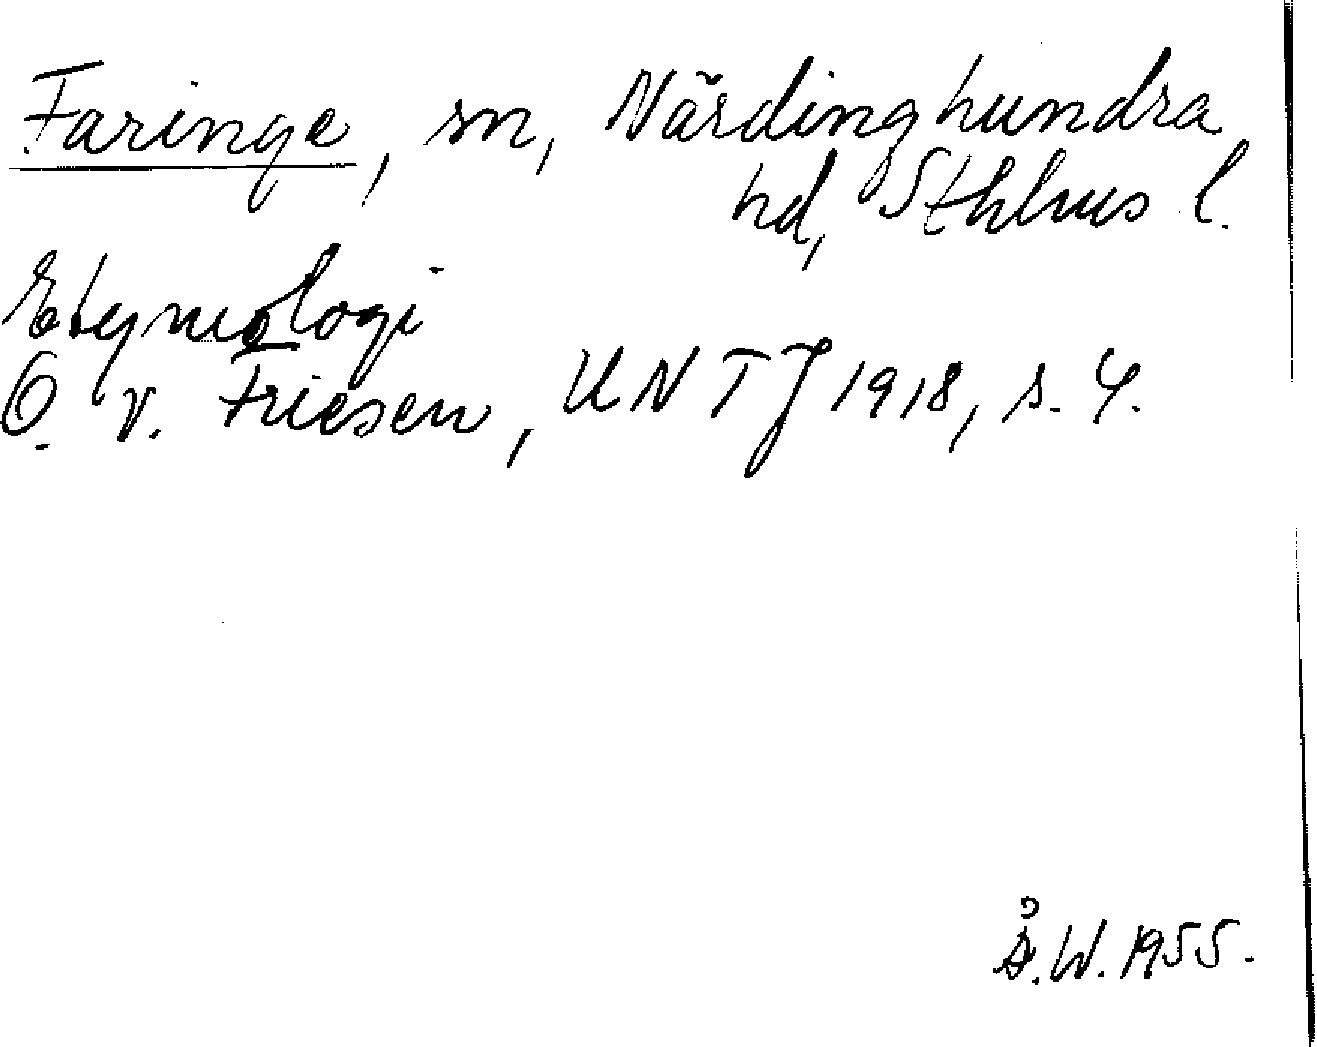 Faringe, sn, Närdinghundra
hd, Sthlms l.
Etymologi
O. v. Friesen, UNTJ 1918, s. 4.
Å.W. 1955.